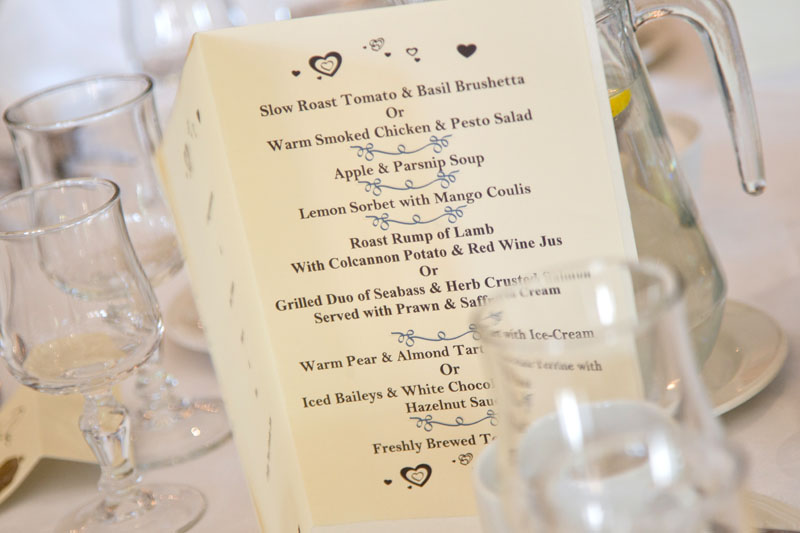 Slow Roast Tomato & Basil Brushetta
Or
Warm Smoked Chicken & Pesto Salad
Apple & Parsnip Soup
Lemon Sorbet with Mango Coulis
Roast Rump of Lamb
With Colcannon Potato & Red Wine Jus
Or
Grilled Duo of Seabass & Herb Crusted Salmon
Served with Prawn & Saffron Cream
Warm Pear & Almond Tart with Ice-Cream
Or
Iced Baileys & White Terrine with
Hazelnut
Freshly Brewed